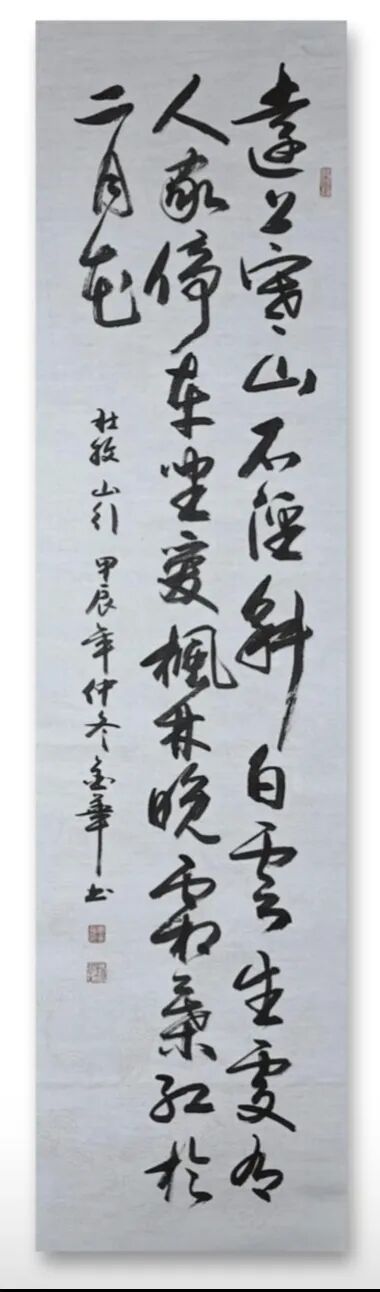 遠上寒山石徑斜白雲生處有
人家停車坐愛楓林晚霜葉紅於
二月花
杜牧山行 甲辰年仲冬金華书